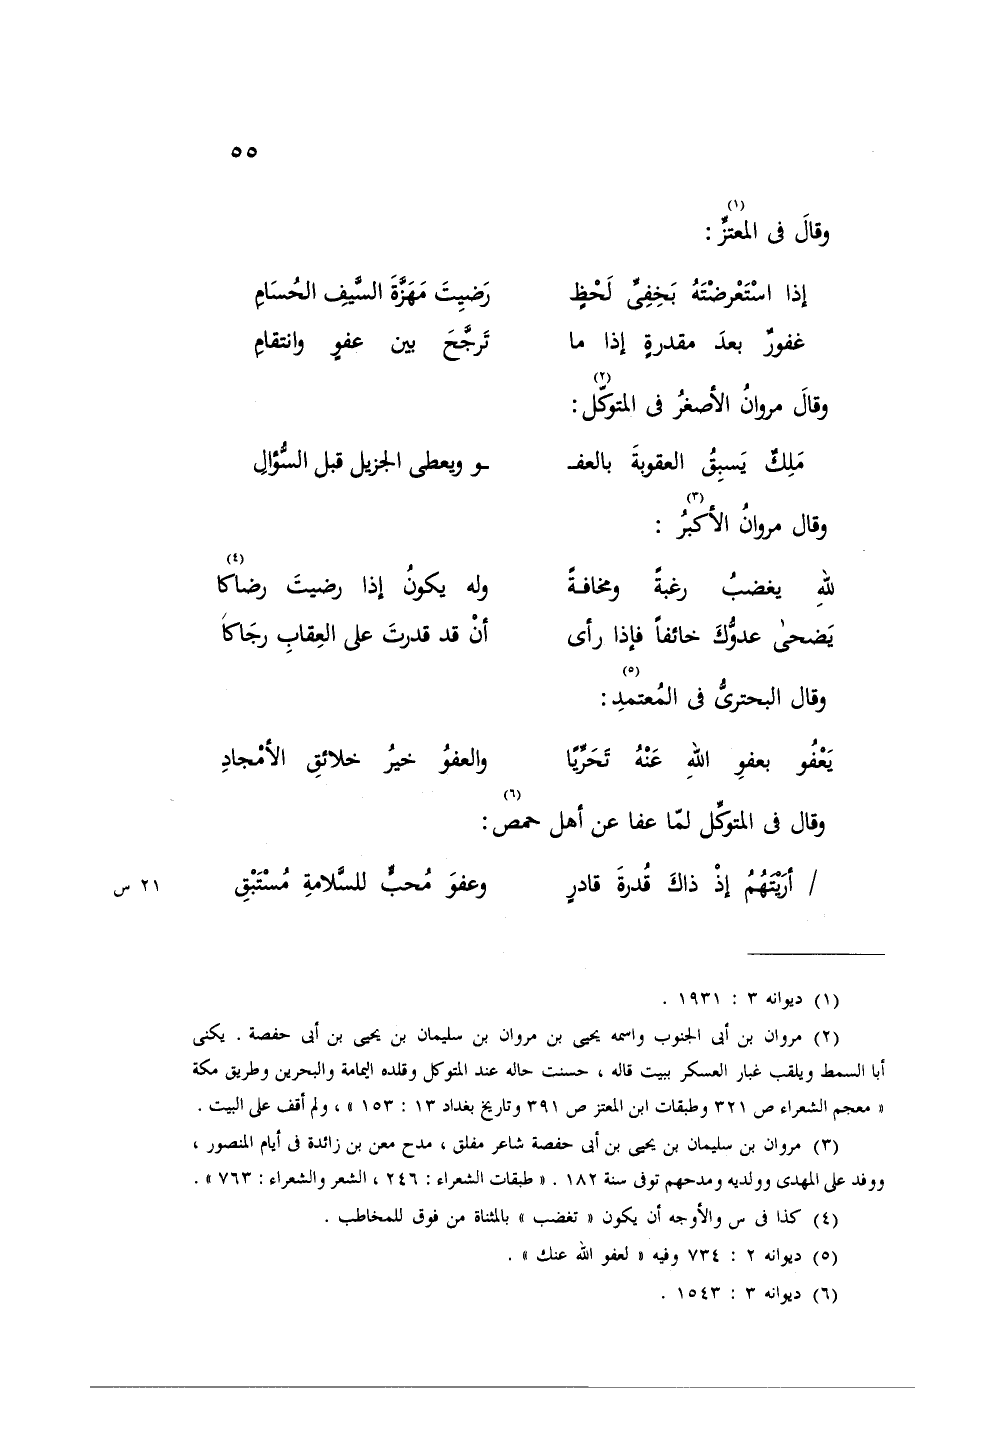 ٥٥
وقالَ فى المعتزِّ (١) :
إذا اسْتَعْرضْتَهُ بَخِفِىِّ لَحْظٍ رَضيِتَ مَهَزَّةَ السَّيفِ الحُسَامِ
غفورٌ بعدَ مقدرةٍ إذا ما تَرجَّحَ بين عفوٍ وانتقامِ
وقالَ مروانُ الأصغرُ فى المتوكّل (٢) :
مَلِكٌ يَسبِقُ العقوبةَ بالعفـ ـو ويعطى الجزيل قبل السُّؤالِ
وقال مروانُ الأكبرُ (٣) :
للهِ يغضبُ رغبةً ومخافةً وله يكونُ إذا رضيتَ رضاكا (٤)
يَضحىٰ عدوُّكَ خائفاً فإذا رأى أنْ قد قدرتَ على العِقابِ رجَاكاَ
وقال البحترىُّ فى المُعتمدِ (٥) :
يَعْفُو بعفوِ اللهِ عَنْهُ تَحَرِّيًا والعفوُ خيرُ خلائقِ الأمْجادِ
وقال فى المتوكِّل لمّا عفا عن أهل حمص (٦) :
/ أرَيْتَهُمُ إذْ ذاكَ قُدرةَ قادرٍ وعفوَ مُحبٍّ للسَّلامةِ مُسْتَبْقِ ٢١ س
(١) ديوانه ٣ : ١٩٣١ .
(٢) مروان بن أبى الجنوب واسمه يحيى بن مروان بن سليمان بن يحيى بن أبى حفصة . يكنى
أبا السمط ويلقب غبار العسكر ببيت قاله ، حسنت حاله عند المتوكل وقلده اليمامة والبحرين وطريق مكة
« معجم الشعراء ص ٣٢١ وطبقات ابن المعتز ص ٣٩١ وتاريخ بغداد ١٣ : ١٥٣ » ، ولم أقف على البيت .
(٣) مروان بن سليمان بن يحيى بن أبى حفصة شاعر مفلق ، مدح معن بن زائدة فى أيام المنصور ،
ووفد على المهدى وولديه ومدحهم توفى سنة ١٨٢ . « طبقات الشعراء : ٢٤٦ ، الشعر والشعراء : ٧٦٣ » .
(٤) كذا فى س والأوجه أن يكون « تغضب » بالمثناة من فوق للمخاطب .
(٥) ديوانه ٢ : ٧٣٤ وفيه « لعفو الله عنك » .
(٦) ديوانه ٣ : ١٥٤٣ .